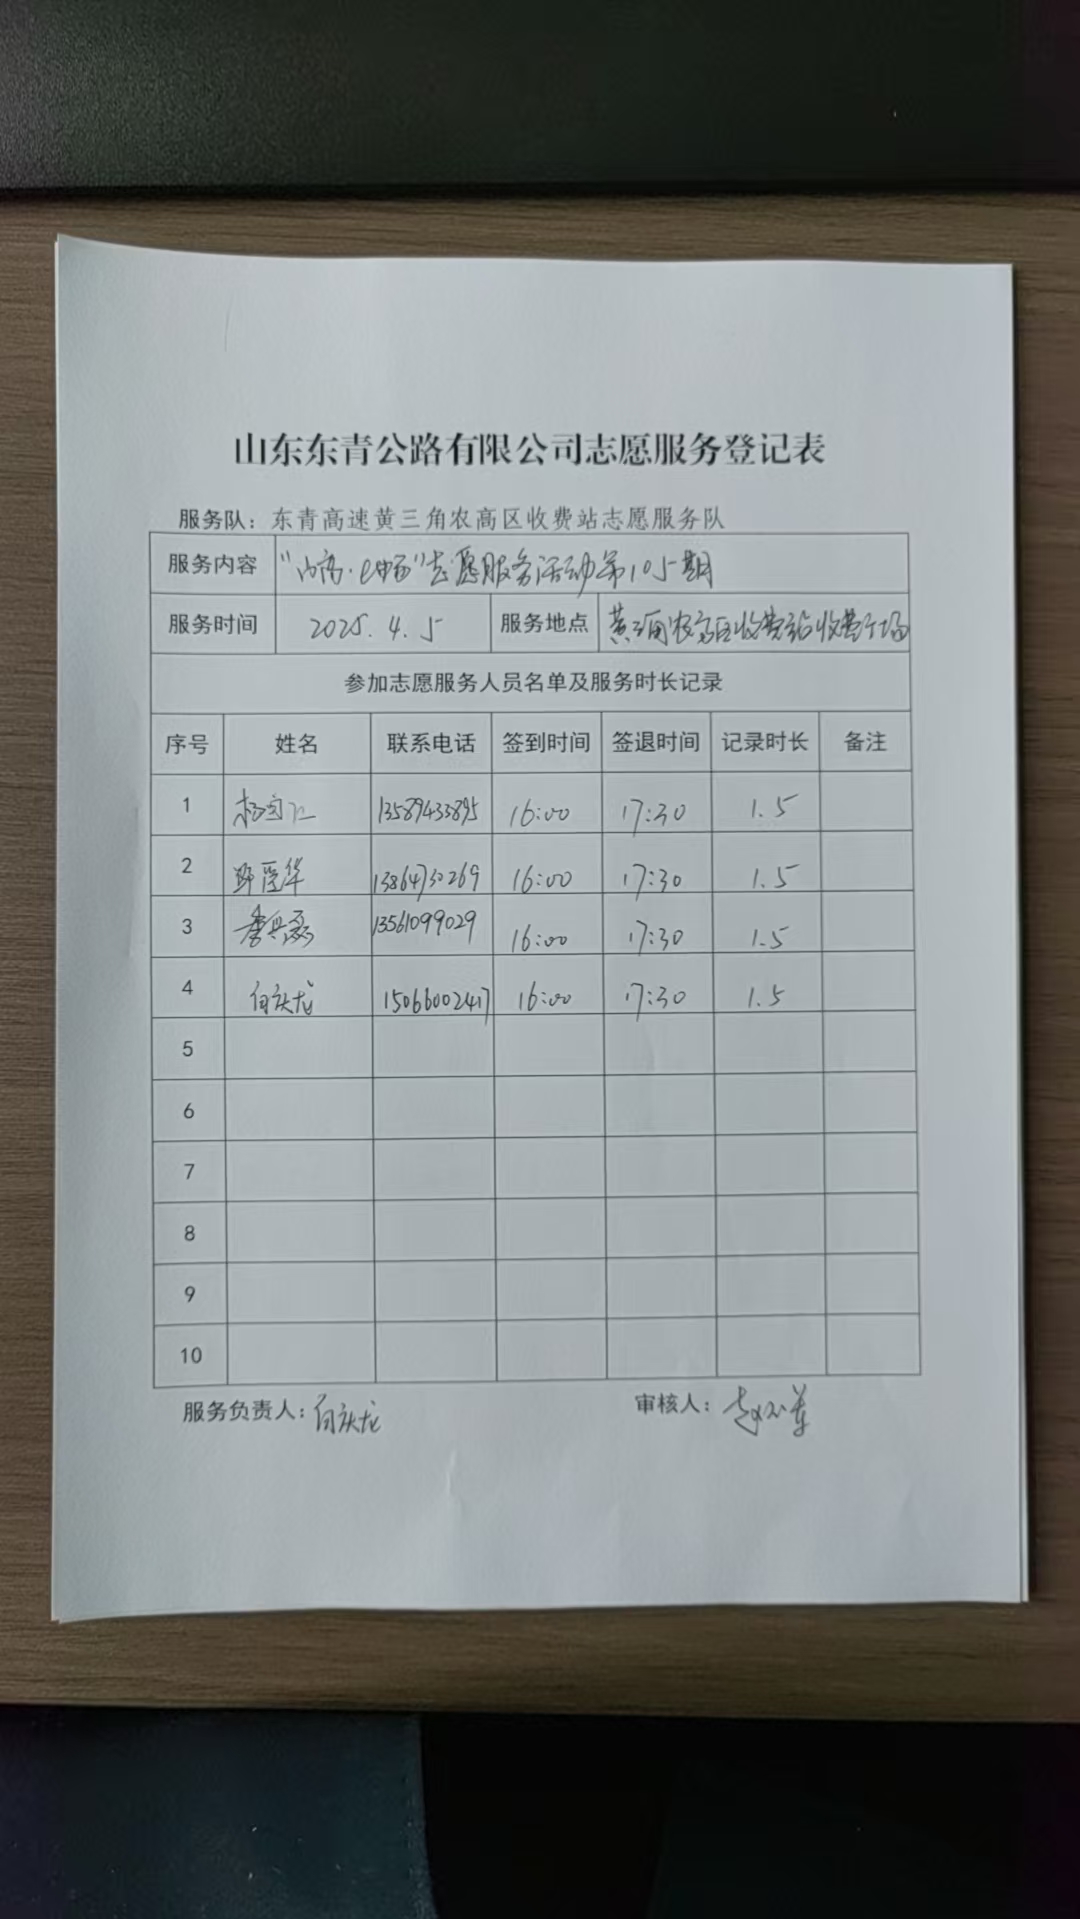 山东东青公路有限公司志愿服务登记表
服务队：东青高速黄三角农高区收费站志愿服务队
服务内容 “山高·e畅”志愿服务活动第105期
服务时间 2025.4.5 服务地点 黄三角农高区收费站收费广场
参加志愿服务人员名单及服务时长记录
序号 姓名 联系电话 签到时间 签退时间 记录时长 备注
1 13589433895 16:00 17:30 1.5
2 13864730269 16:00 17:30 1.5
3 13561099029 16:00 17:30 1.5
4 白庆龙 15066002417 16:00 17:30 1.5
5
6
7
8
9
10
服务负责人：白庆龙 审核人：